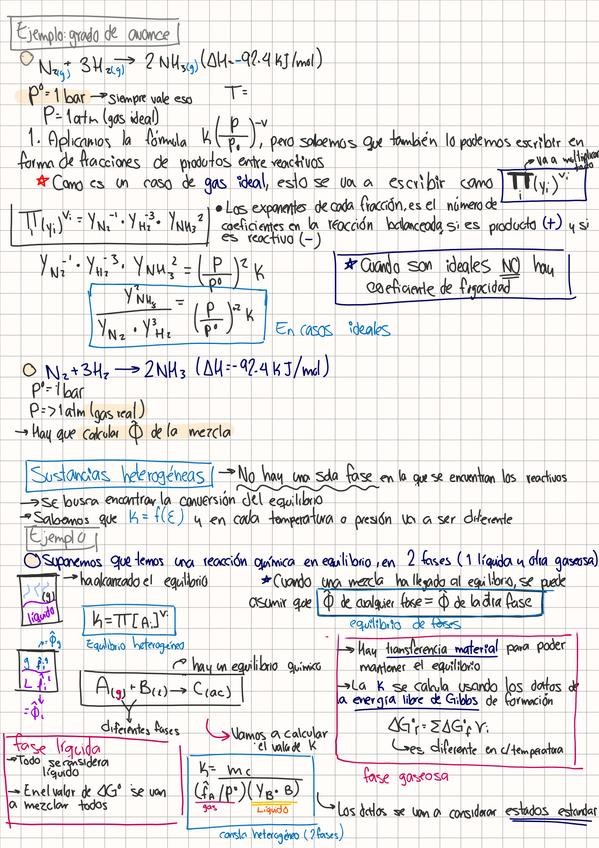 Ejemplo: grado de avance
N₂(g) + 3H₂(g) → 2 NH₃(g) (ΔH=-92.4 KJ/mol)
P°=1 bar → siempre vale eso T=
P=1atm (gas ideal)
1. Aplicamos la fórmula K(P/P°)^-v, pero sabemos que también lo podemos escribir en
forma de fracciones de produtos entre reactivos
→ va a multiplicar todo
★ Como es un caso de gas ideal, esto se va a escribir como Π(yᵢ)^vᵢ
i
Π(yᵢ)^Vᵢ = Y_N₂⁻¹ · Y_H₂⁻³ · Y_NH₃²
• Los exponentes de cada fracción, es el número de
coeficientes en la reacción balanceada, si es producto (+) y si
es reactivo (-)
Y_N₂⁻¹ · Y_H₂⁻³ · Y_NH₃² = (P/P°)² K
★ Cuando son ideales NO hay
coeficiente de fugacidad
Y²_NH₃ / Y_N₂ · Y³_H₂ = (P/P°)² K
En casos ideales
N₂ + 3H₂ → 2NH₃ (ΔH=-92.4 KJ/mol)
P°=1bar
P=>1atm (gas real)
→ Hay que calcular Φ̂ de la mezcla
Sustancias heterogéneas → No hay una sola fase en la que se encuentran los reactivos
→ Se busca encontrar la conversión del equilibrio
→ Sabemos que K=f(ε) y en cada temperatura o presión va a ser diferente
Ejemplo
Suponemos que temos una reacción química en equilibrio, en 2 fases (1 líquida y otra gaseosa)
(g)
líquido
→ ha alcanzado el equilibrio
★ Cuando una mezcla ha llegado al equilibrio, se puede
asumir que Φ̂ de cualquier fase = Φ̂ de la otra fase
equilibrio de fases
K=Π[Aᵢ]^Vᵢ
Equilibrio heterogéneo
→ hay un equilibrio químico
A(g) + B(l) → C(ac)
diferentes fases
→ Hay transferencia material para poder
mantener el equilibrio
→ La K se calcula usando los datos de
la energía libre de Gibbs de formación
ΔG°r = ΣΔG°f vᵢ
↳ es diferente en c/temperatura
fase gaseosa
↳ Vamos a calcular
el valor de K
fase líquida
→ Todo se considera
líquido
→ En el valor de ΔG° se van
a mezclar todos
K = mc / (f̂_A/P°)(Y_B · B)
gas líquido
consta heterogéneo (2 fases)
↳ Los datos se van a considerar estados estandar